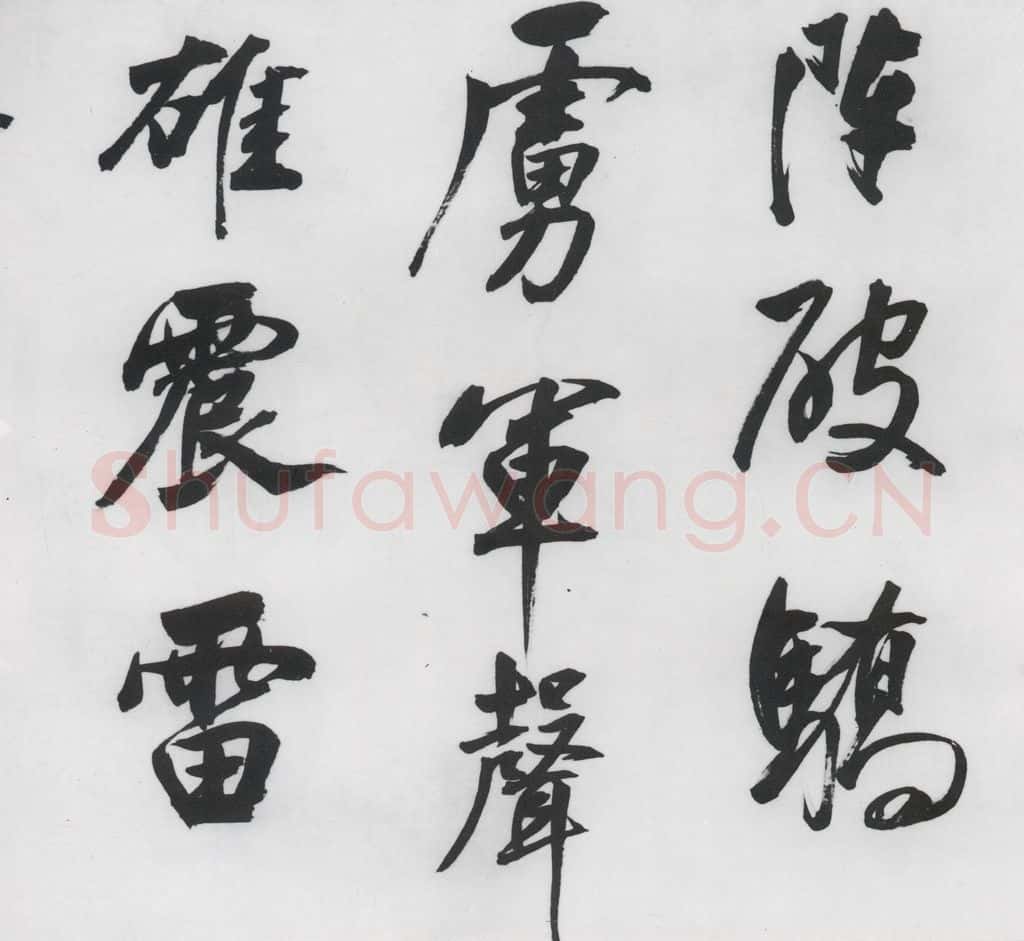 阵破驕
虜軍聲
雄震雷
Shufawang.CN